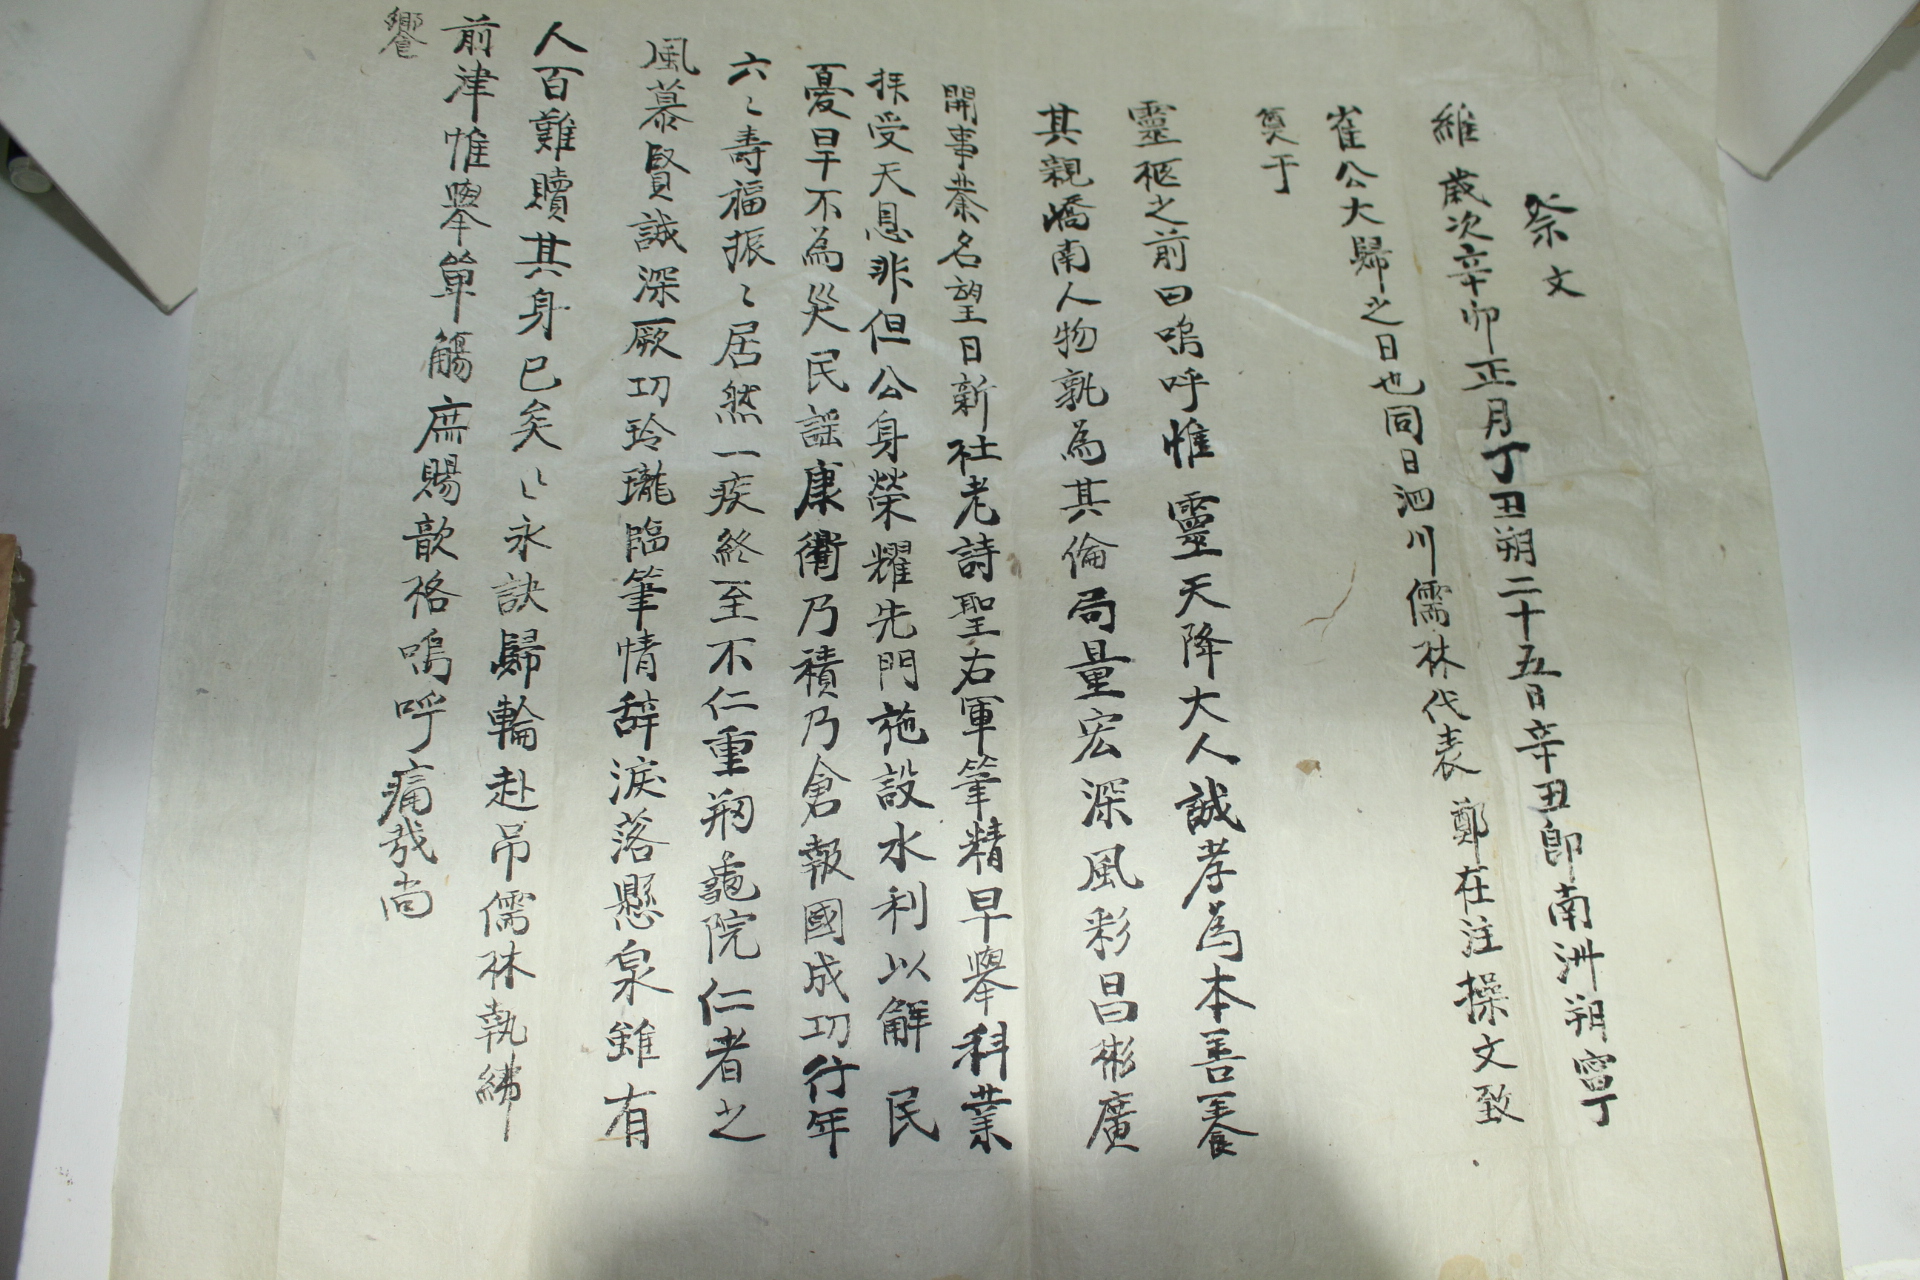 祭文
維 歲次辛卯正月丁丑朔二十五日辛丑卽南洲朔寧
崔公大歸之日也同日泗川儒林代表 鄭在注操文致
奠于
靈柩之前曰嗚呼惟 靈天降大人誠孝爲本善養
其親嶠南人物孰爲其倫局量宏深風彩昌彬廣
開事業名望日新社老詩聖右軍筆精早擧科業
拜受天恩非但公身榮耀先門施設水利以解 民
憂旱不為災民謡康衢乃積乃倉報國成功行年
六〻壽福振〻居然一疾終至不仁重剏龜院仁者之
風慕賢誠深厥功玲瓏臨筆情辞淚落懸泉雖有
人百難贖其身已矣〻〻永訣歸輪赴吊儒林執紼
前津惟擧單觴庶賜歆格嗚呼痛哉尚
饗